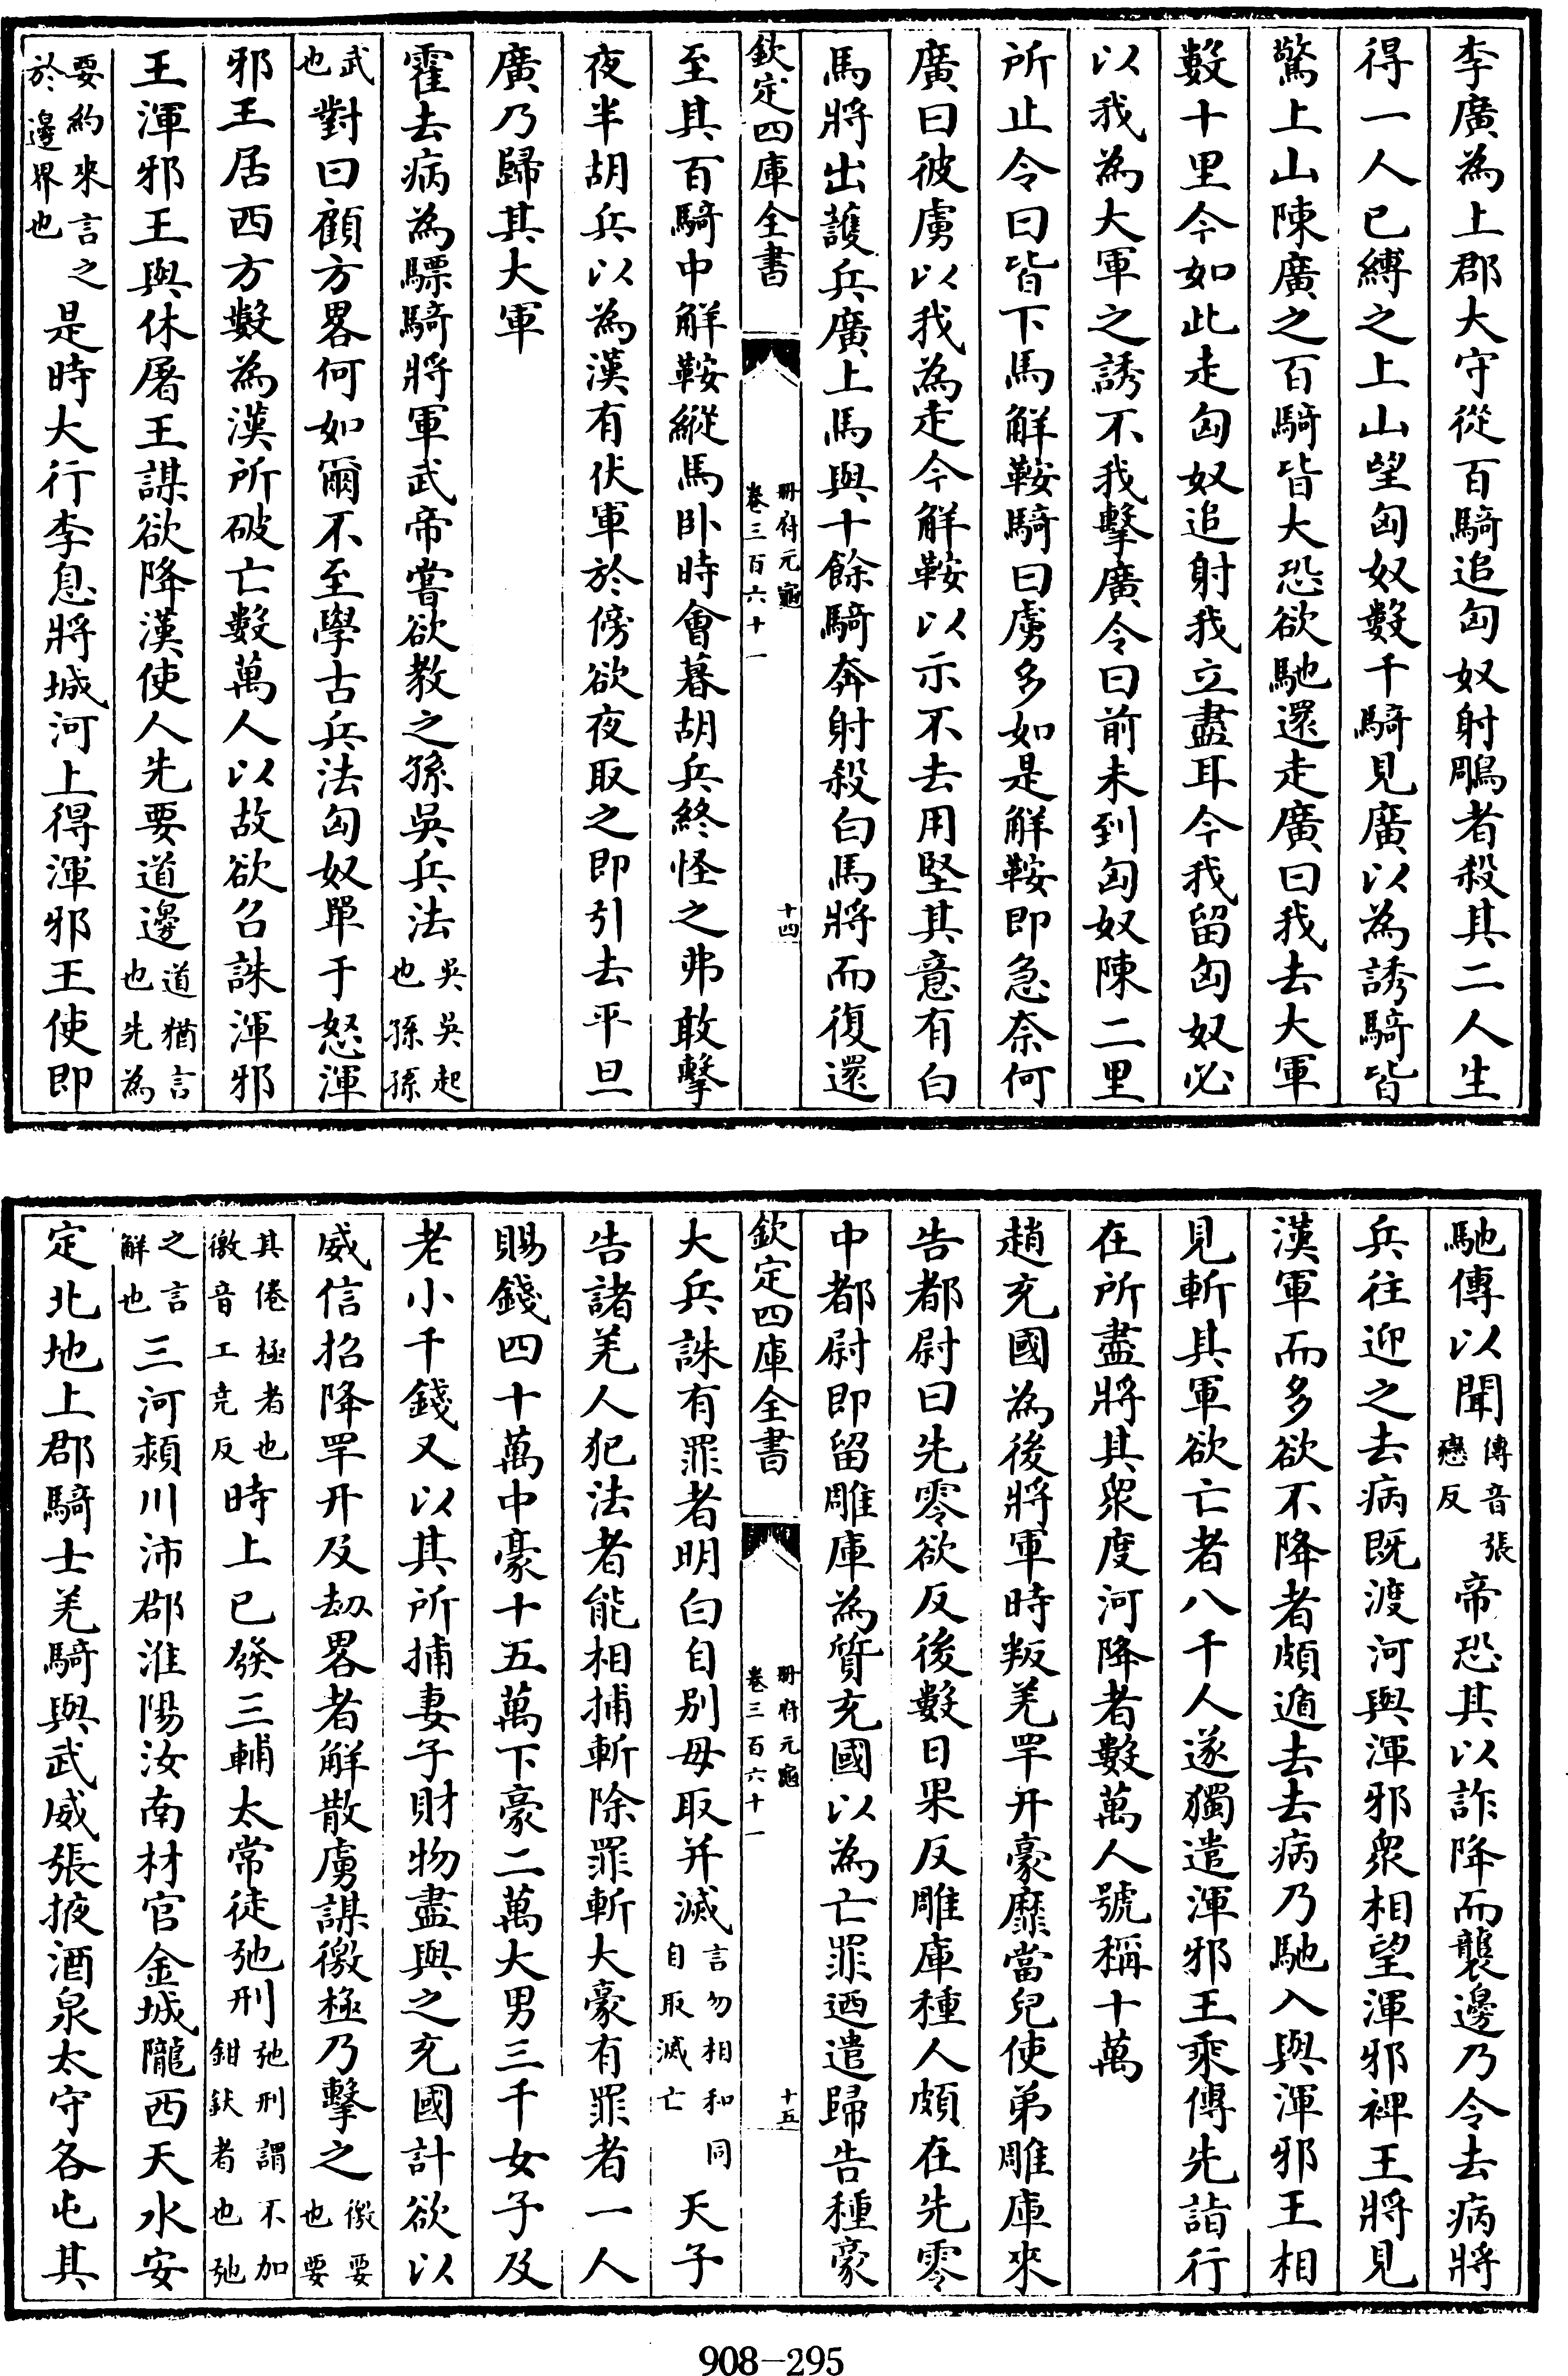 李廣為上郡大守從百騎追匈奴射鵰者殺其二人生
得一人已縛之上山望匈奴數千騎見廣以為誘騎皆
驚上山陳廣之百騎皆大恐欲馳還走廣曰我去大軍
數十里今如此走匈奴追射我立盡耳今我留匈奴必
以我為大軍之誘不我擊廣令曰前未到匈奴陳二里
所止令曰皆下馬解鞍騎曰虜多如是解鞍即急奈何
廣曰彼虜以我為走今解鞍以示不去用堅其意有白
馬將出護兵廣上馬與十餘騎奔射殺白馬將而復還
欽定四庫全書
冊府元龜
卷三百六十一
十四
至其百騎中解鞍縱馬卧時會暮胡兵終怪之弗敢擊
夜半胡兵以為漢有伏軍於傍欲夜取之即引去平旦
廣乃歸其大軍
霍去病為驃騎將軍武帝嘗欲教之孫吳兵法吳吳起也孫孫
武也對曰顧方畧何如爾不至學古兵法匈奴單于怒渾
邪王居西方數為漢所破亡數萬人以故欲召誅渾邪
王渾邪王與休屠王謀欲降漢使人先要道邊道猶言也先為
要約來言之於邊界也是時大行李息將城河上得渾邪王使即
馳傳以聞傳音張戀反帝恐其以詐降而襲邊乃令去病將
兵往迎之去病既渡河與渾邪衆相望渾邪裨王將見
漢軍而多欲不降者頗遁去去病乃馳入與渾邪王相
見斬其軍欲亡者八千人遂獨遣渾邪王乘傳先詣行
在所盡將其衆度河降者數萬人號稱十萬
趙充國為後將軍時叛羌罕幵豪靡當兒使弟雕庫來
告都尉曰先零欲反後數日果反雕庫種人頗在先零
中都尉即留雕庫為質充國以為亡罪迺遣歸告種豪
欽定四庫全書
冊府元龜
卷三百六十一
十五
大兵誅有罪者明白自别毋取并滅言勿相和同自取滅亡天子
告諸羌人犯法者能相捕斬除罪斬大豪有罪者一人
賜錢四十萬中豪十五萬下豪二萬大男三千女子及
老小千錢又以其所捕妻子財物盡與之充國計欲以
威信招降罕幵及劫畧者解散虜謀徼極乃擊之徼要也要
其倦極者也徼音工堯反時上已發三輔太常徒弛刑弛刑謂不加鉗釱者也弛
之言解也三河潁川沛郡淮陽汝南材官金城隴西天水安
定北地上郡騎士羌騎與武威張掖酒泉太守各屯其
908—295